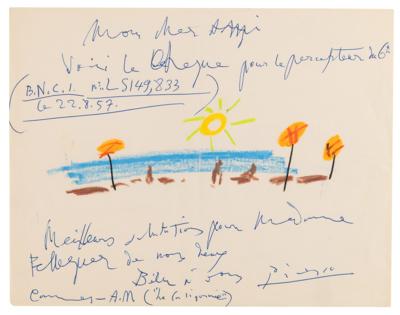 Mon cher
Voici le chèque pour le percepteur du 6e
(B.N.C.I. n: LS149,833
le 22.8.57.)
Meilleurs salutations pour Madame
de nous deux
Bien à vous Picasso
Cannes - A.M ("la Californie")